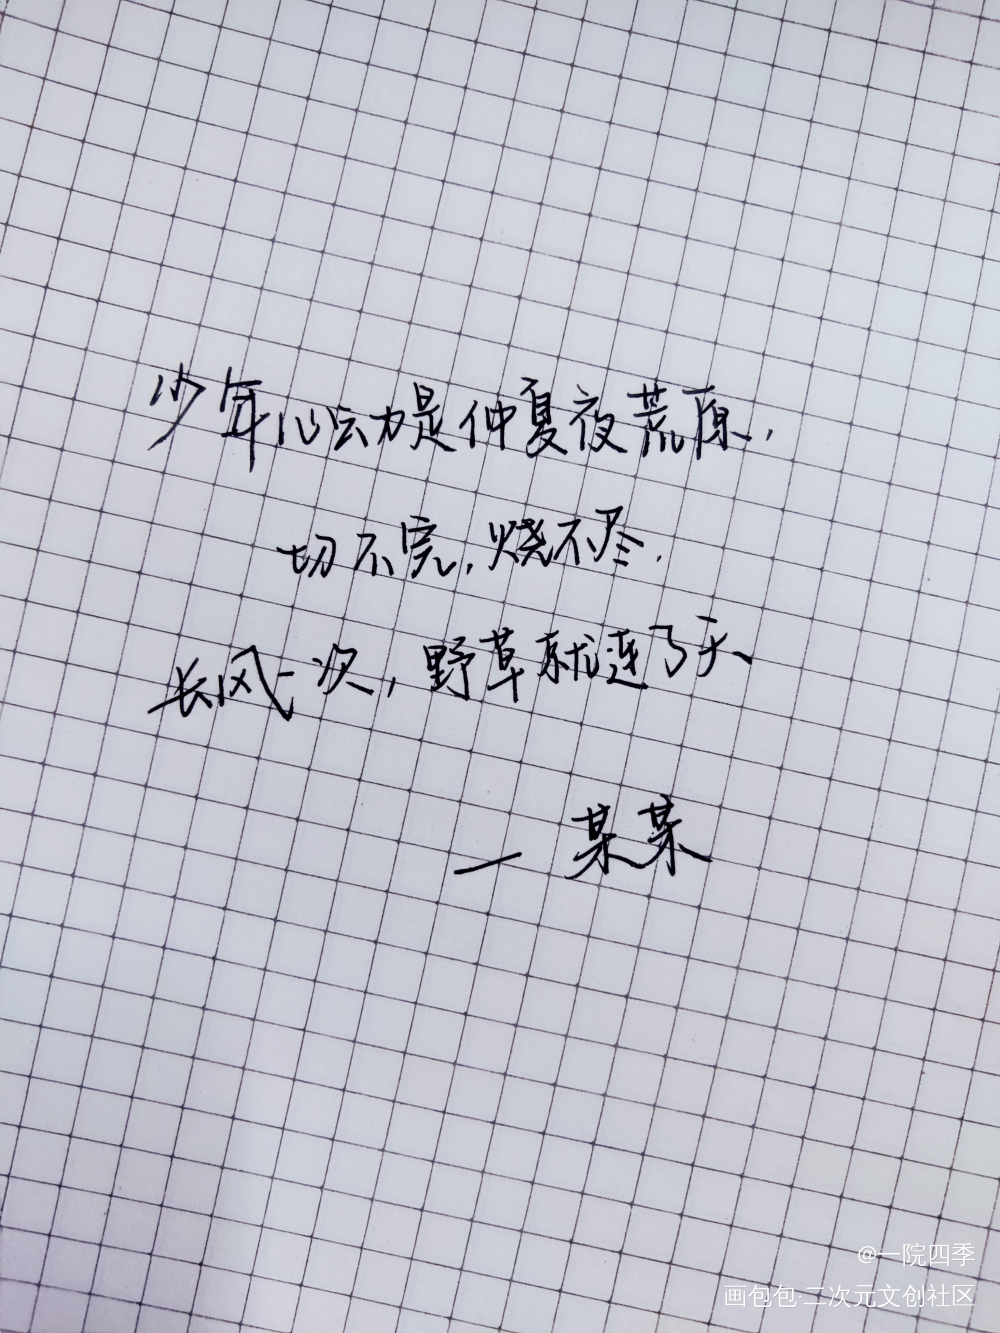 少年心动是仲夏夜荒原,
切不完,烧不尽.
长风一次,野草就连了天
— 某某
@一院四季
画包包·二次元文创社区